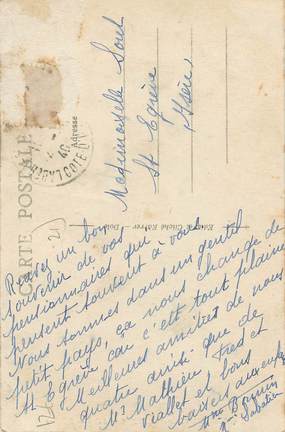 CARTE POSTALE
Adresse
Mademoiselle
St Egrève
(Isère)
Recevez un bon
souvenir de vos
pensionnaires qui
pensent souvent à vous.
Nous sommes dans un gentil
petit pays, ça nous change de
St Egrève car c'est tout plaine
Meilleures amitiés de nous
quatre ainsi que de
Mr Mathieu Fred et
Viallet et bons
baisers aux enfants
Sabatier